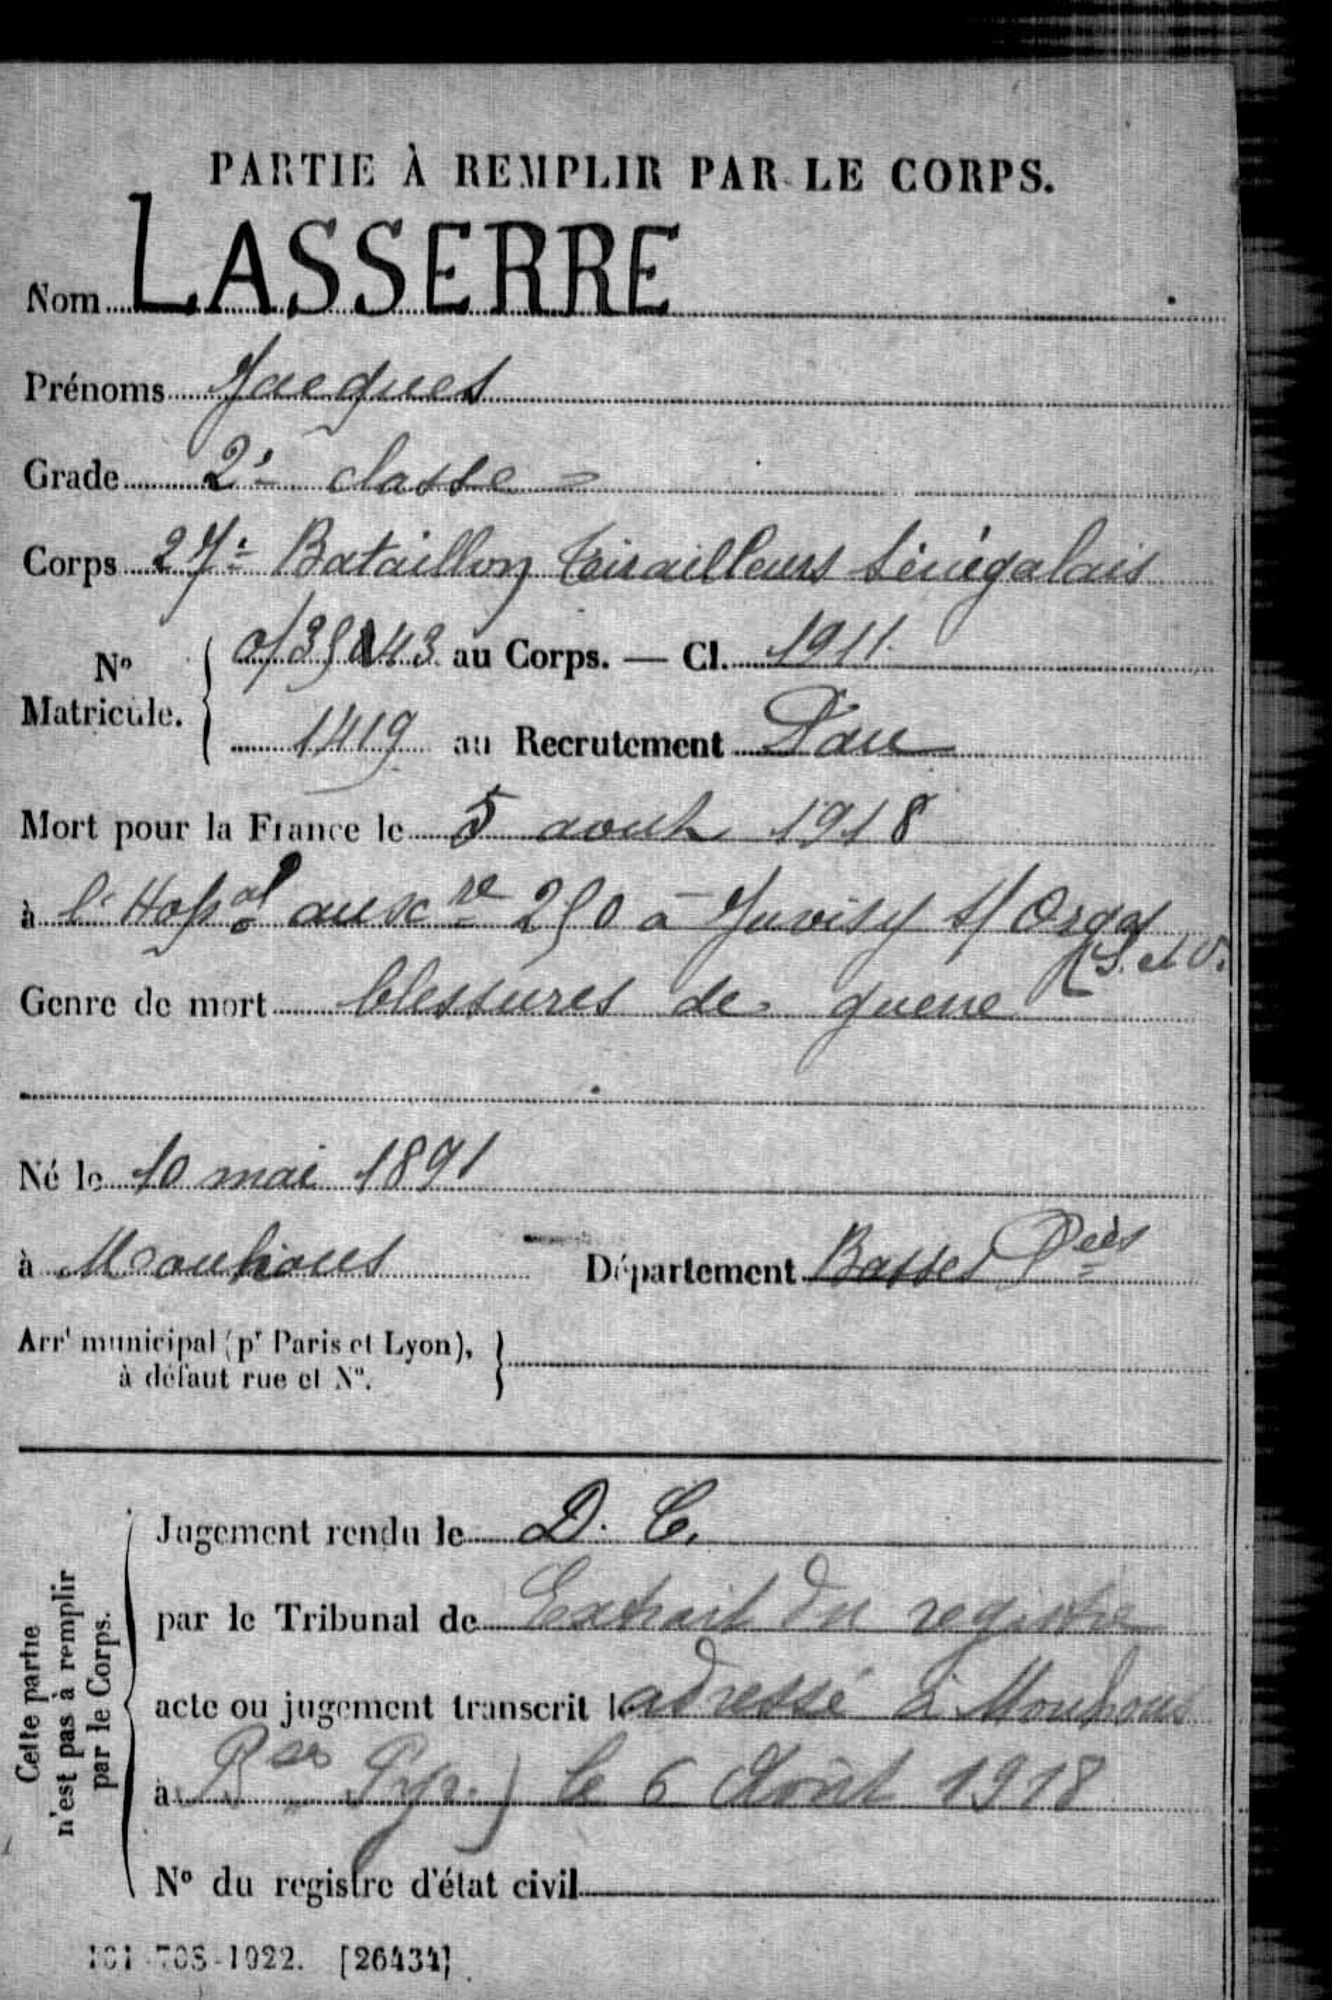 PARTIE À REMPLIR PAR LE CORPS.
Nom LASSERRE
Prénoms Jacques
Grade 2e classe =
Corps 27e Bataillon Tirailleurs Sénégalais
No Matricule. { au Corps. — Cl. 1911
1419 au Recrutement Pau
Mort pour la France le 5 août 1918
à l'Hopal auxre 250 à Juvisy s/ Orge
(S. et O.
Genre de mort blessures de guerre
Né le 10 mai 1891
à Mouhous Département Basses Pées
Arrt municipal (pr Paris et Lyon), }
à défaut rue et No.
Cette partie
n'est pas à remplir
par le Corps.
Jugement rendu le D. C.
par le Tribunal de Extrait du registre
acte ou jugement transcrit le adressé à Mouhous
à Bses Pyr.) le 6 Août 1918
No du registre d'état civil
101-708-1922. [26434]